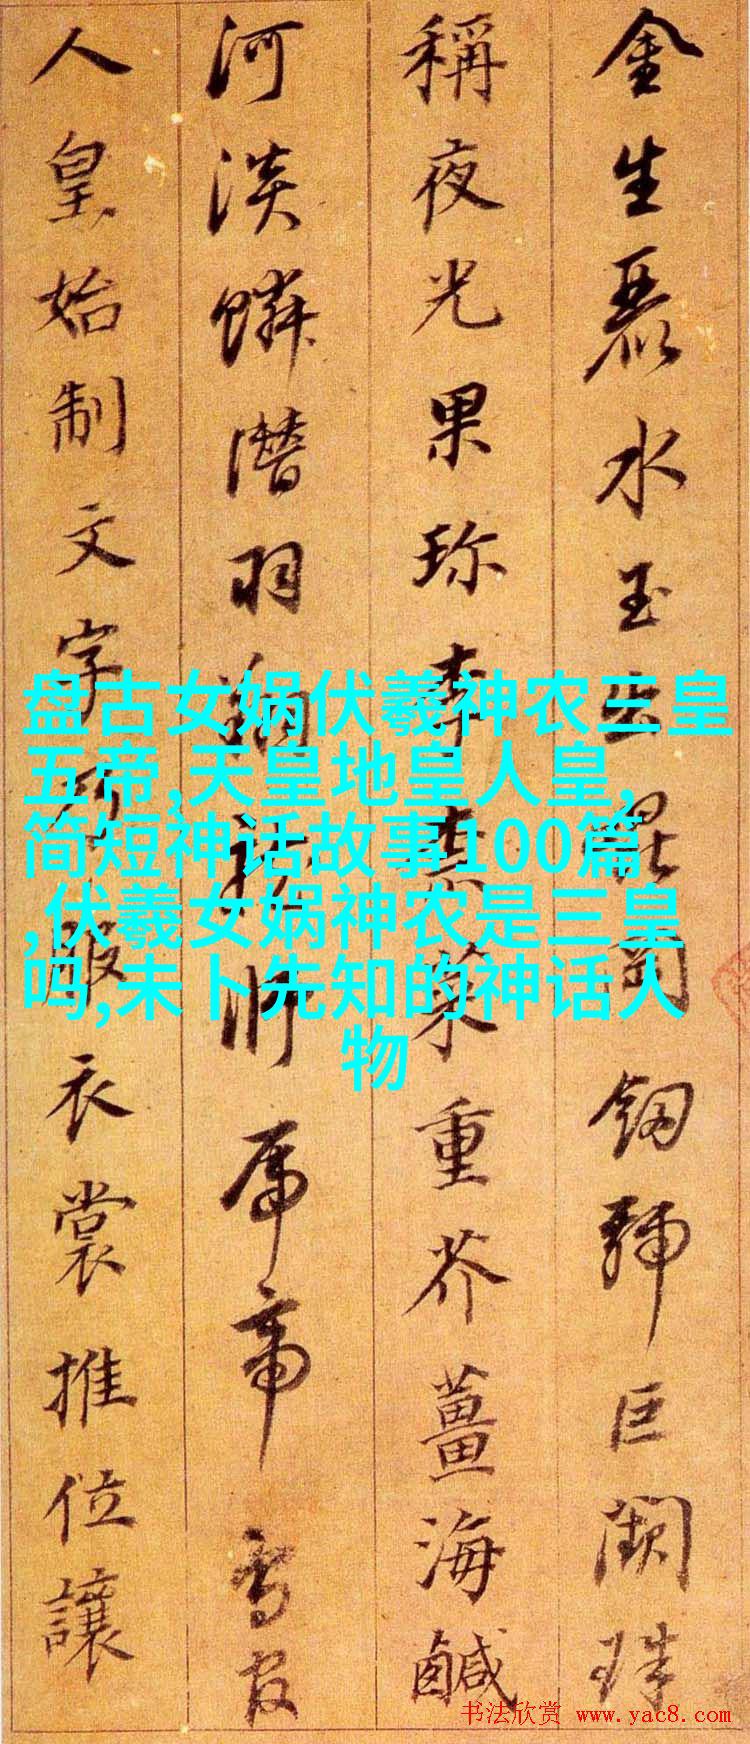 金生麗水玉出崑岡劒號巨闕珠
稱夜光果珎李柰菜重芥薑海鹹
河淡鱗潛羽翔龍師帝鳥官
人皇始制文字乃服衣裳推位讓
盘古女娲伏羲神农三皇
五帝,天皇地皇人皇,
简短神话故事100篇
,伏羲女娲神农是三皇
吗,未卜先知的神话人
物
书法欣赏 www.yac8.com